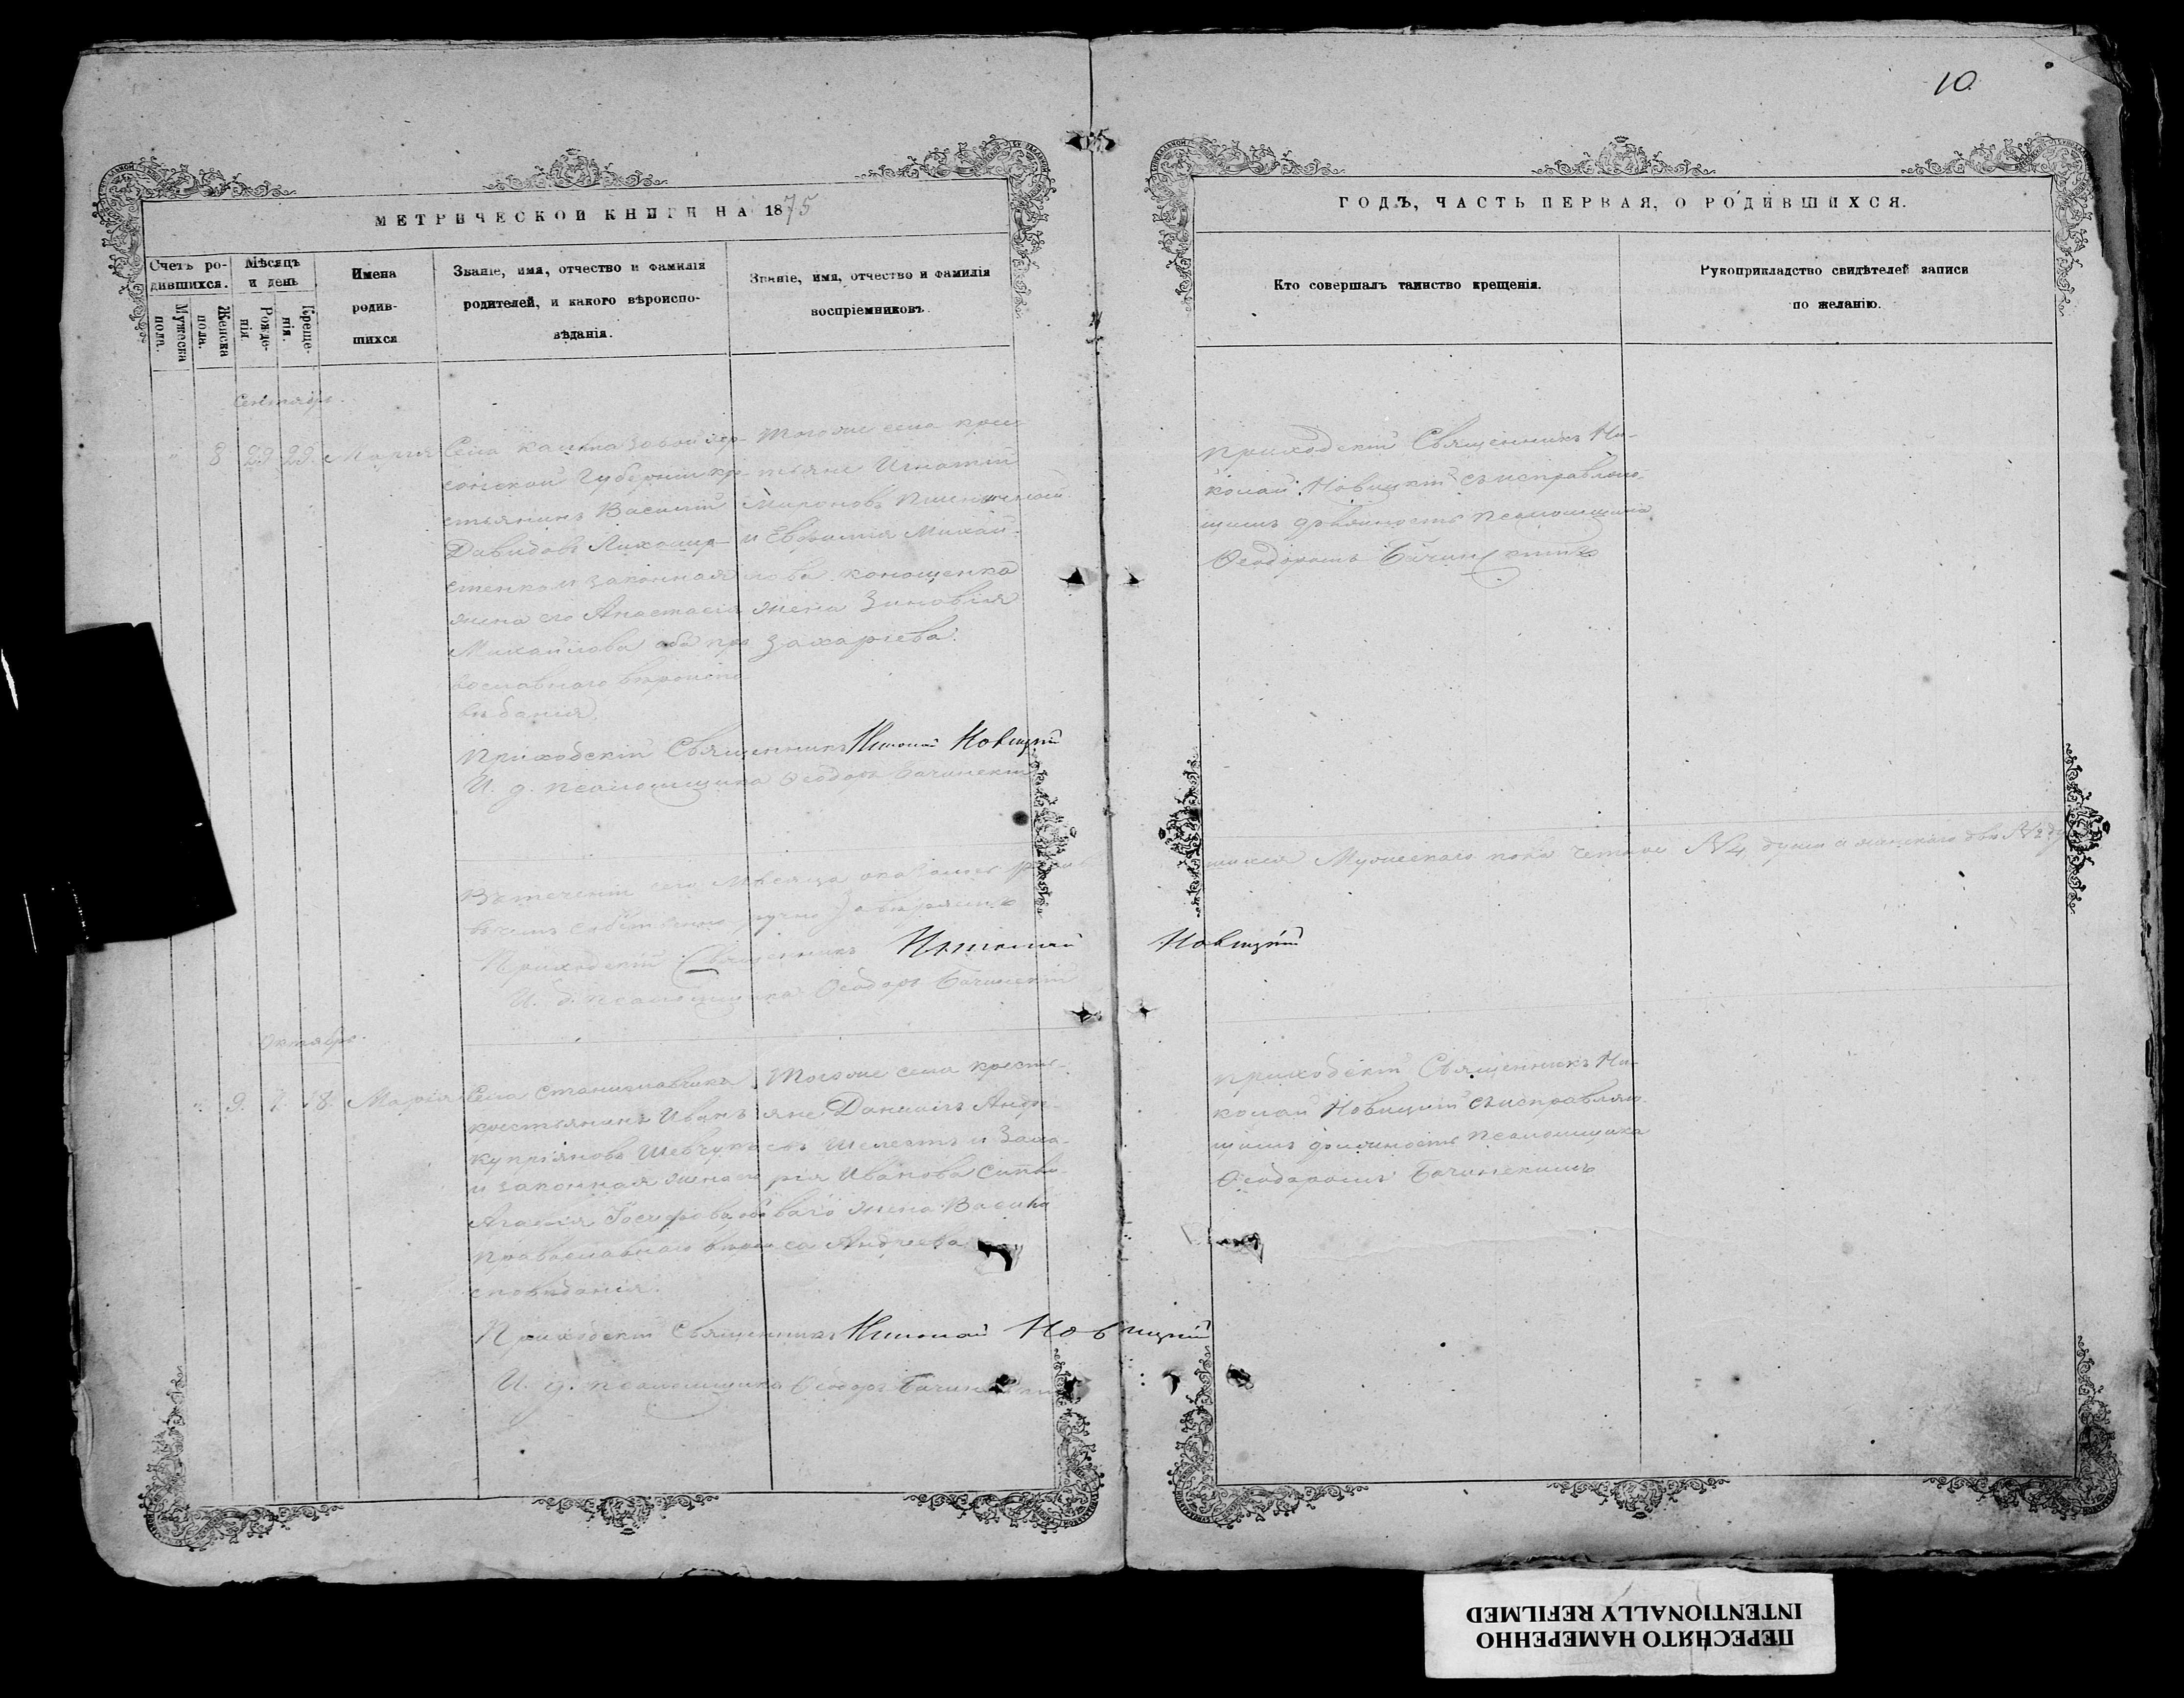 10
МЕТРИЧЕСКОЙ КНИГИ НА 1875
ГОДЪ, ЧАСТЬ ПЕРВАЯ, О РОДИВШИХСЯ.
Счетъ ро-
дившихся.
Мужеска
пола.
Женска
пола.
Мѣсяцъ
и день
Рожде-
нія
Креще-
нія.
Имена
родив-
шихся
Званіе, имя, отчество и фамилія
родителей, и какого вѣроиспо-
вѣданія.
Званіе, имя, отчество и фамилія
воспріемниковъ.
Кто совершалъ таинство крещенія.
Рукоприкладство свидѣтелей записи
по желанію.
Сентябрь.
" 8 29 29. Марія
Села Хер-
сонской Губерніи кре-
стьянинъ Василій
Давидовъ
законная
жена его Анастасія
Михайлова оба пра
вославного вѣроиспо
вѣданія.
Тогоже села крес-
тьяне Игнатій
Мироновъ
и Евфимія Михай-
лова
жена Зиновія
Захаріева.
Приходскій Священникъ Ни-
колай Новицкій съ исправляю-
щимъ должность псаломщика
Ѳеодоромъ Бачинскимъ
Приходскій Священникъ Николай Новицкій
И. д. псаломщика Ѳеодоръ Бачинскій
Въ теченіи сего мѣсяца родив
шихся Мужескаго пола четыре №4 души а женскаго двѣ №2
въ чемъ собственно ручно
Приходскій Священникъ Николай Новицкій
И. д. псаломщика Ѳеодоръ Бачинскій
Октябрь.
" 9. 7. 8. Марія
Села Станиславчика
крестьянинъ Иванъ
Купріяновъ Шевчукъ
и законная жена его
Агафія Іосифова, обо
Православнаго вѣрои
сповѣданія.
Тогоже села кресть-
яне Даніилъ Андре-
евъ Шелестъ и
Иванова
жена Васи
Андреева
Приходскій Священникъ Ни-
колай Новицкій съ исправляю
щимъ должность Псаломщика
Ѳеодоромъ Бачинскимъ
Приходскій Священникъ Николай Новицкій
И. д. псаломщика Ѳеодоръ
ПЕРЕСНЯТО НАМЕРЕННО
INTENTIONALLY REFILMED